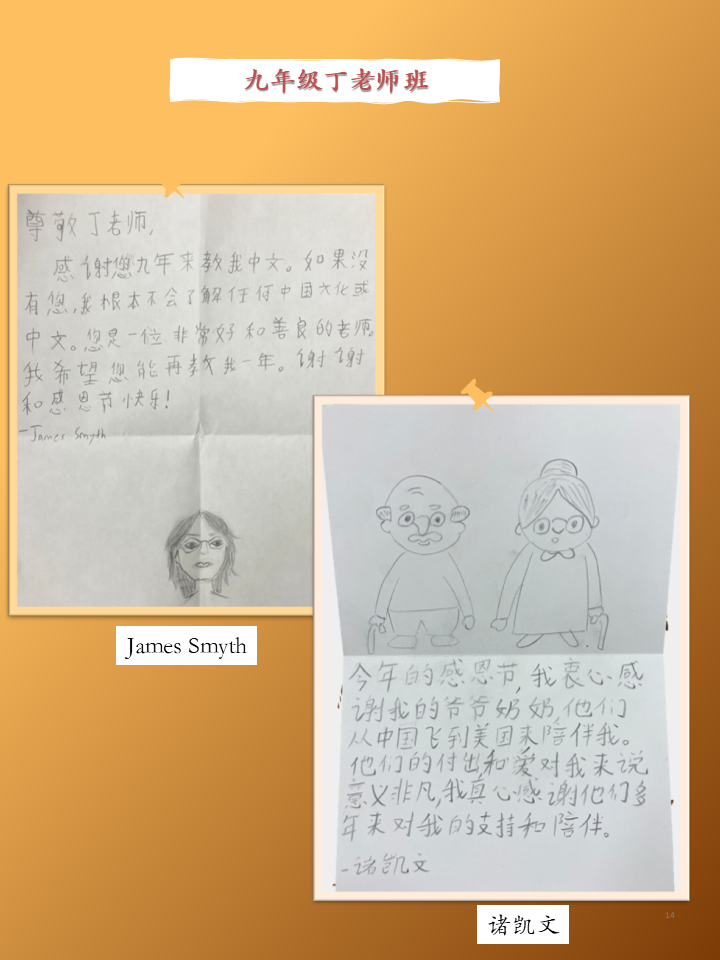 九年级丁老师班
尊敬丁老师,
感谢您九年来教我中文。如果没
有您,我根本不会了解任何中国文化或
中文。您是一位非常好和善良的老师。
我希望您能再教我一年。谢谢
和感恩节快乐!
-James Smyth
James Smyth
今年的感恩节,我衷心感
谢我的爷爷奶奶,他们
从中国飞到美国来陪伴我。
他们的付出和爱对我来说
意义非凡,我真心感谢他们多
年来对我的支持和陪伴。
-诸凯文
诸凯文
14